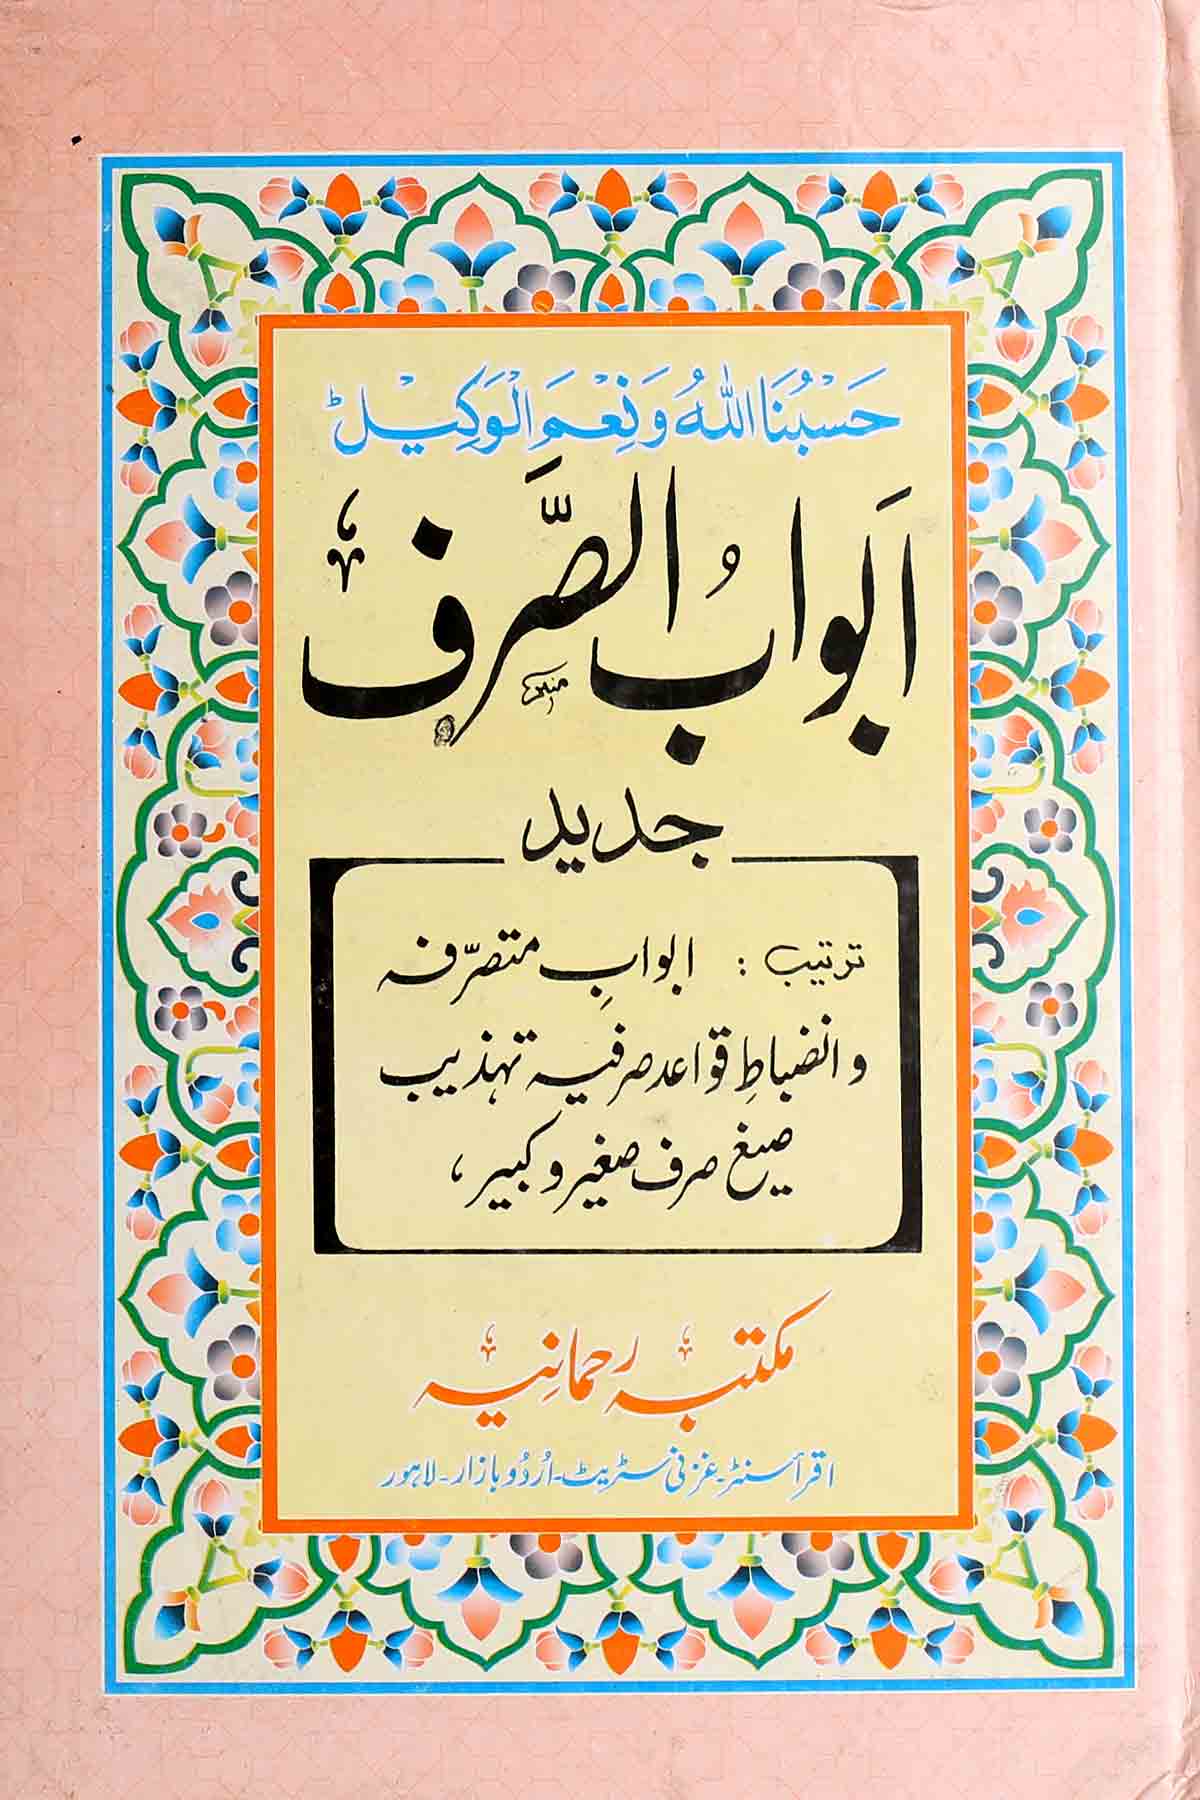 حَسْبُنَا اللّٰهُ وَنِعْمَ الْوَكِيلُ ط
اَبوابُ الصَّرف
جدید
ترتیب : ابوابِ متصرّفہ
و انضباطِ قواعد صرفیہ تہذیب
صیغ صرف صغیر و کبیر،
مکتبہ رحمانیہ
اقرأ سنٹر۔ غزنی سٹریٹ۔ اُردُو بازار۔ لاہور